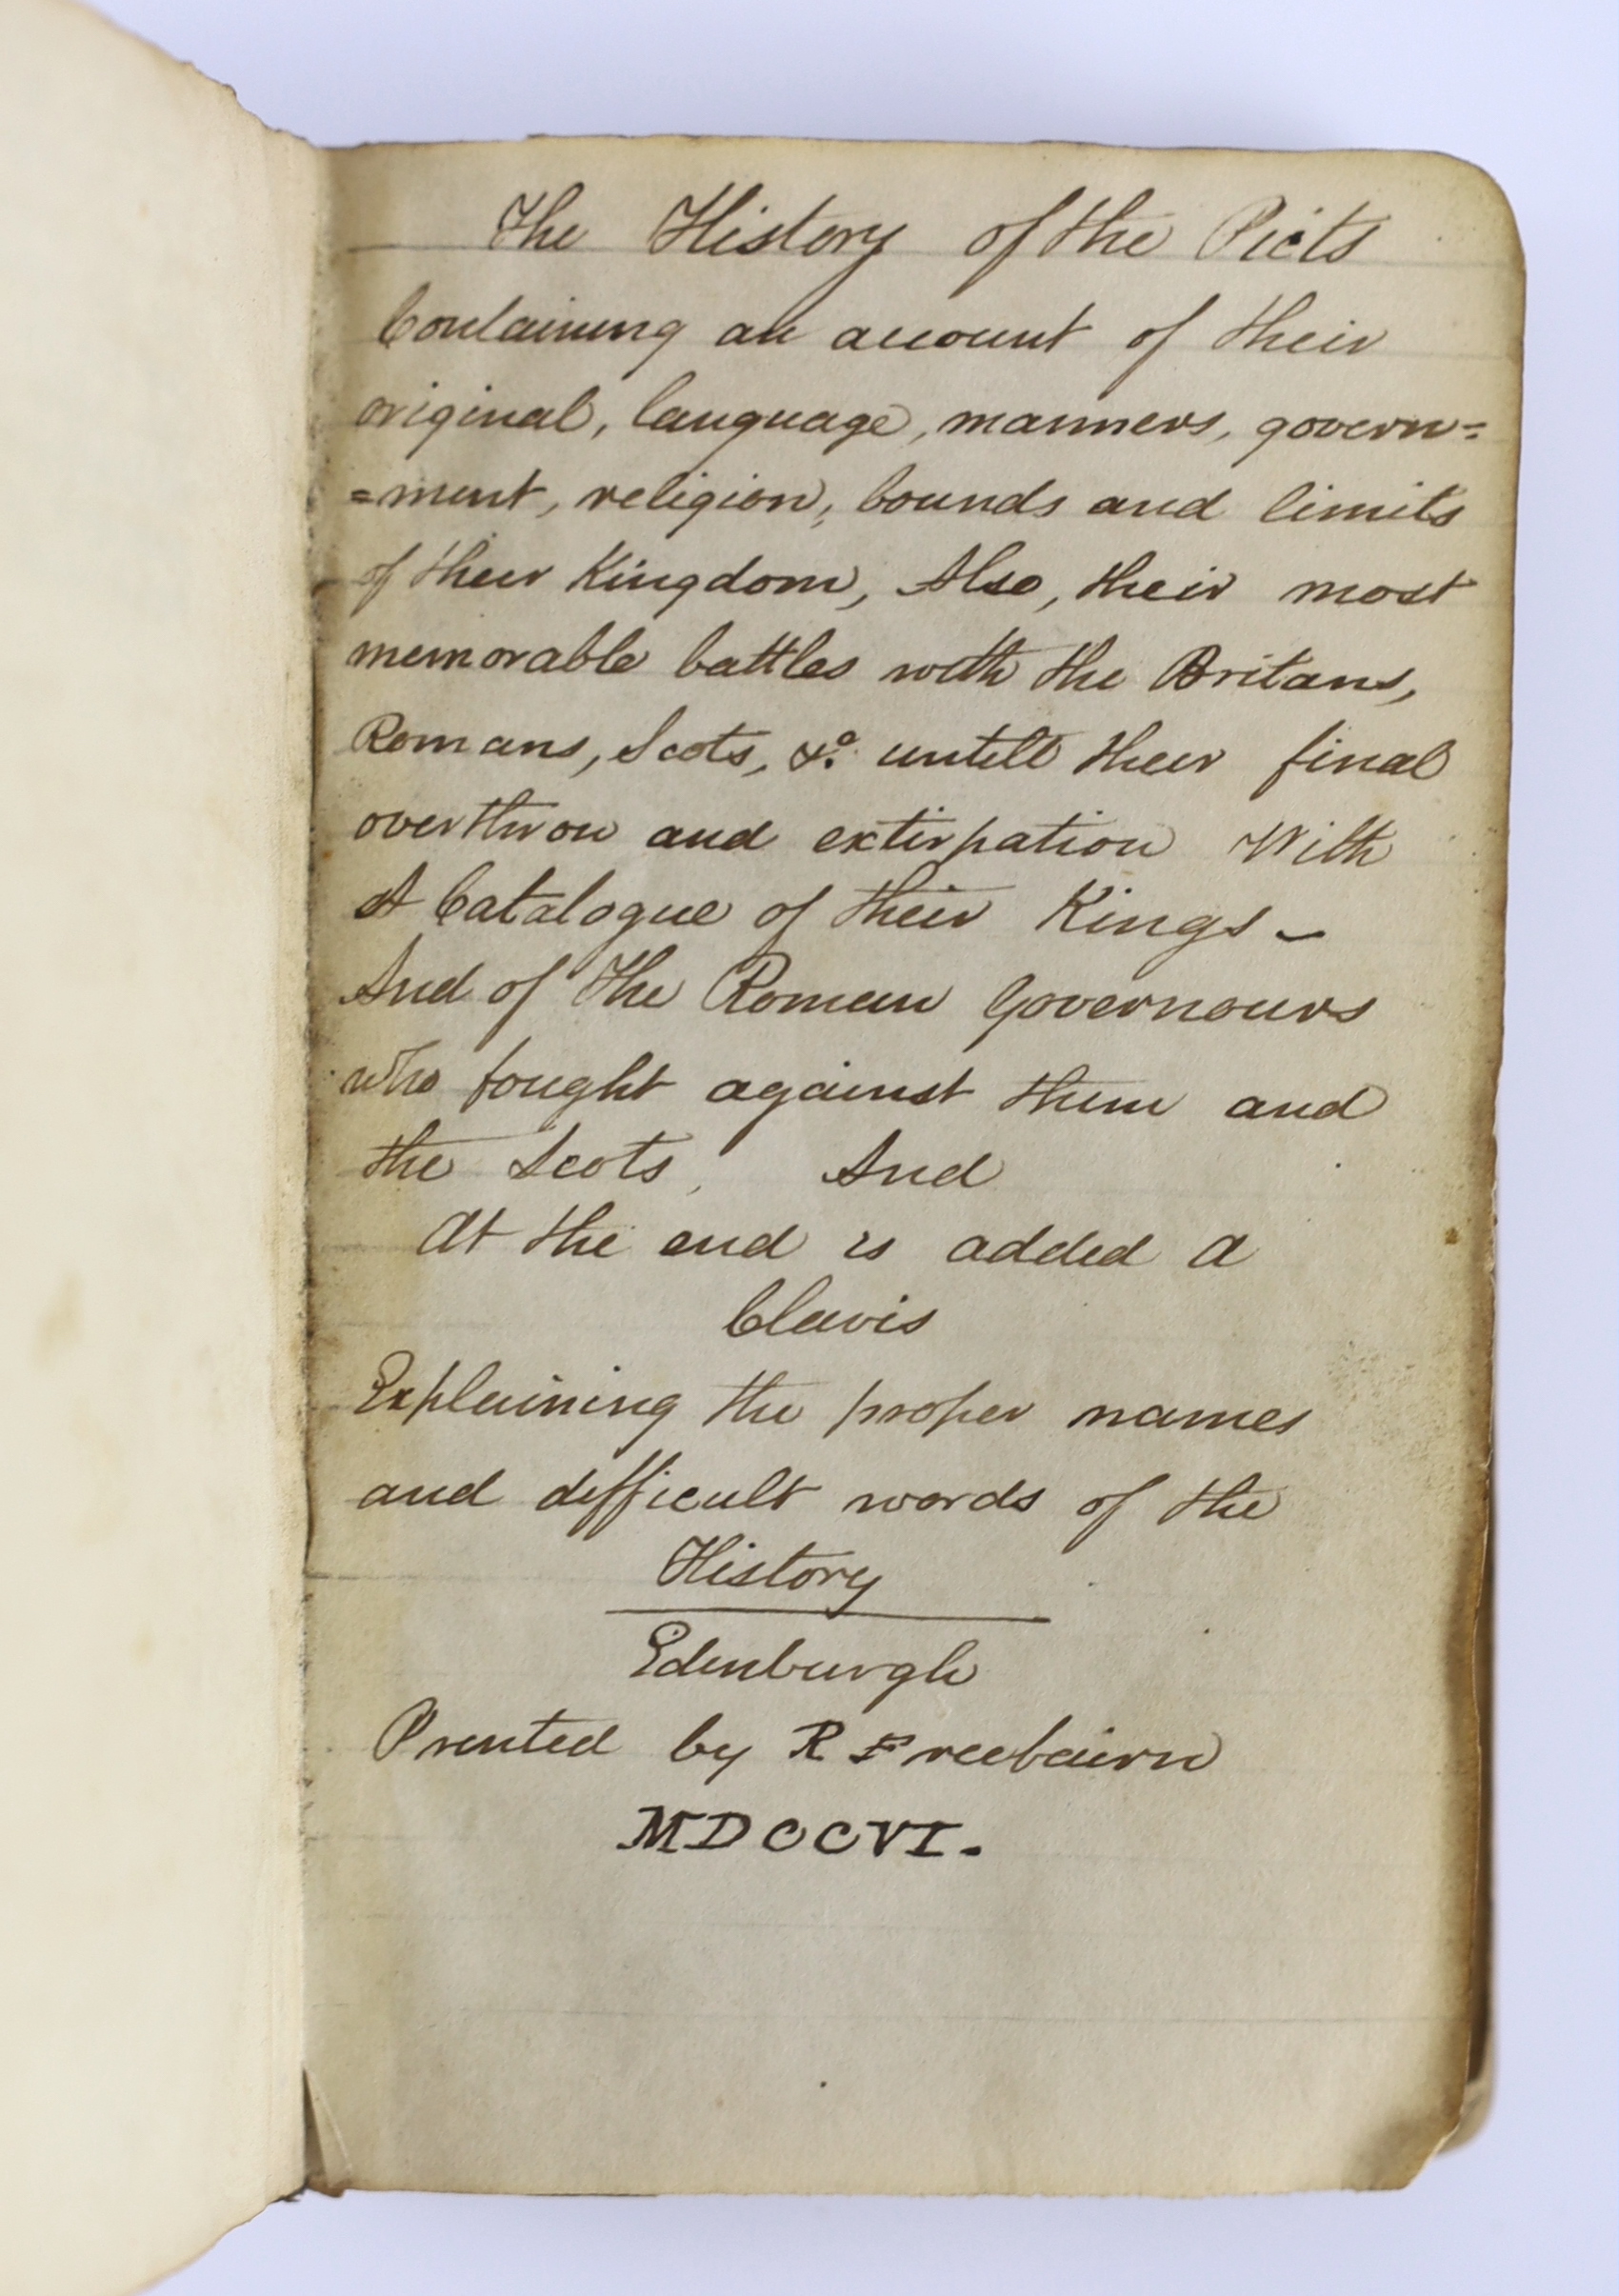 The History of the Picts
Containing an account of their
original, language, manners, govern=
=ment, religion, bounds and limits
of their Kingdom, Also, their most
memorable battles with the Britans,
Romans, Scots, &c. untill their final
overthrow and extirpation With
A Catalogue of their Kings -
And of The Roman Governours
who fought against them and
the Scots, And
At the end is added a
Clavis
Explaining the proper names
and difficult words of the
History
Edenburgh
Prented by R Freebairn
MDCCVI.